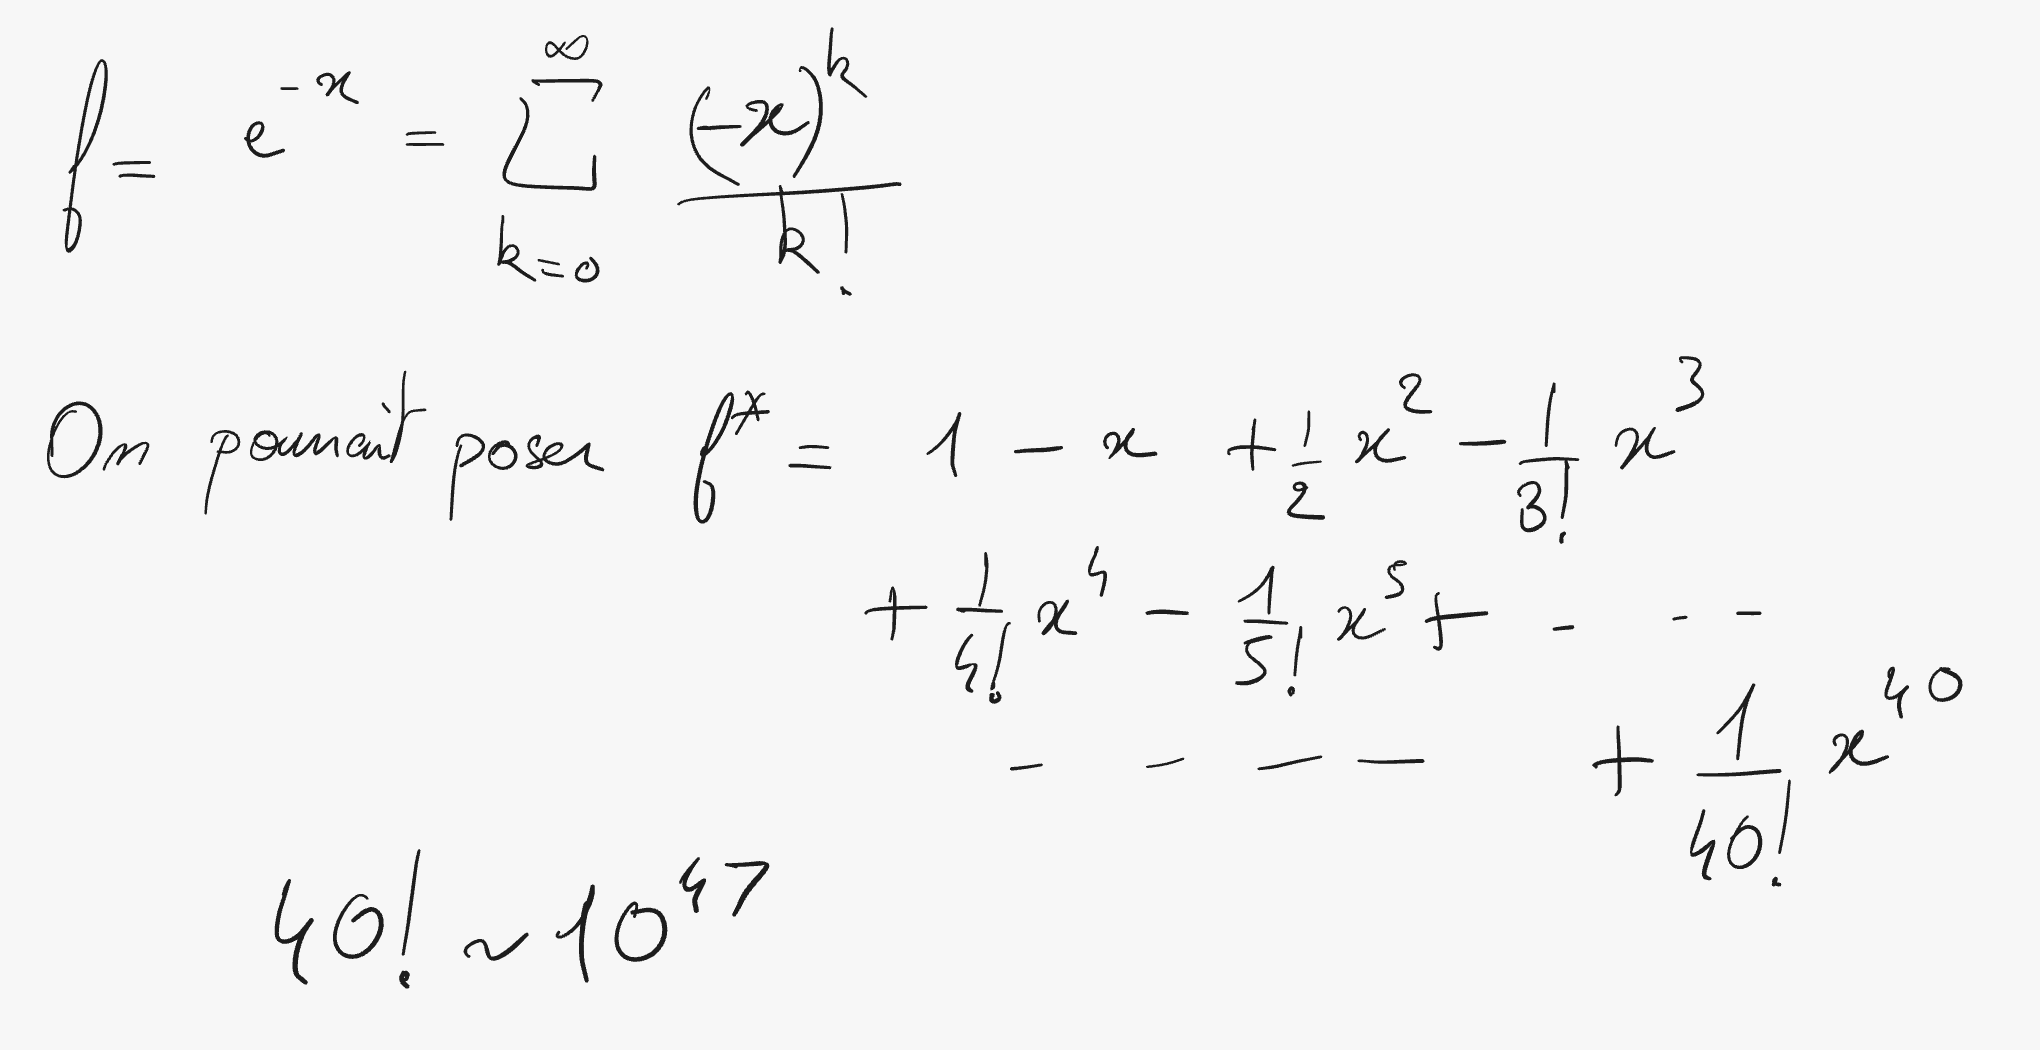 f = e^{-x} = \sum_{k=0}^{\infty} \frac{(-x)^k}{k!}
On pourrait poser f^* = 1 - x + \frac{1}{2} x^2 - \frac{1}{3!} x^3
+ \frac{1}{4!} x^4 - \frac{1}{5!} x^5 + - - -
- - - - + \frac{1}{40!} x^{40}
40! ~ 10^{47}